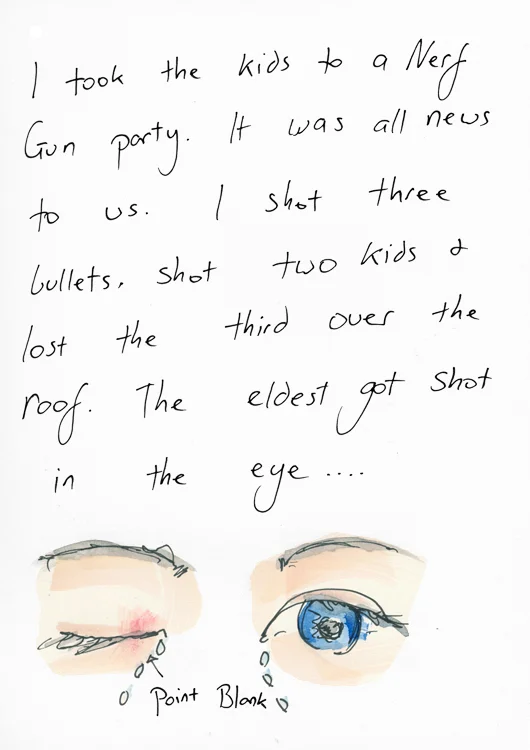 I took the kids to a Nerf
Gun party. It was all news
to us. I shot three
bullets, shot two kids &
lost the third over the
roof. The eldest got shot
in the eye ....
Point Blank